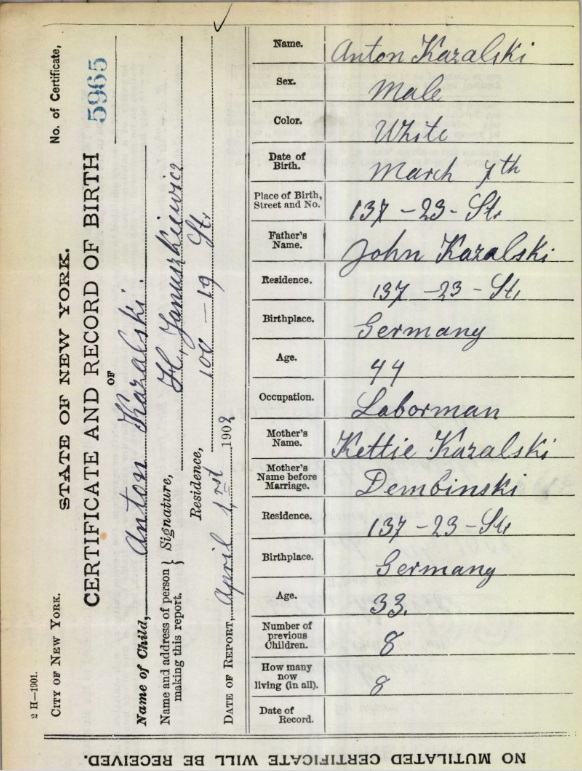 2 H—1901.
CITY OF NEW YORK.
No. of Certificate,
STATE OF NEW YORK.
5965
CERTIFICATE AND RECORD OF BIRTH
OF
Name of Child, Anton Kazalski.
Name and address of person making this report. } Signature, H. Januszkiewicz
Residence, 100 – 19 St.
DATE OF REPORT, April 1rst 1902
Name. Anton Kazalski
Sex. Male
Color. White
Date of Birth. March 7th
Place of Birth, Street and No. 137 – 23 – St,
Father's Name. John Kazalski
Residence. 137 – 23 – St,
Birthplace. Germany
Age. 44
Occupation. Laborman
Mother's Name. Kettie Kazalski
Mother's Name before Marriage. Dembinski
Residence. 137 – 23 – St,
Birthplace. Germany
Age. 33.
Number of previous Children. 8
How many now living (in all). 8
Date of Record.
NO MUTILATED CERTIFICATE WILL BE RECEIVED.